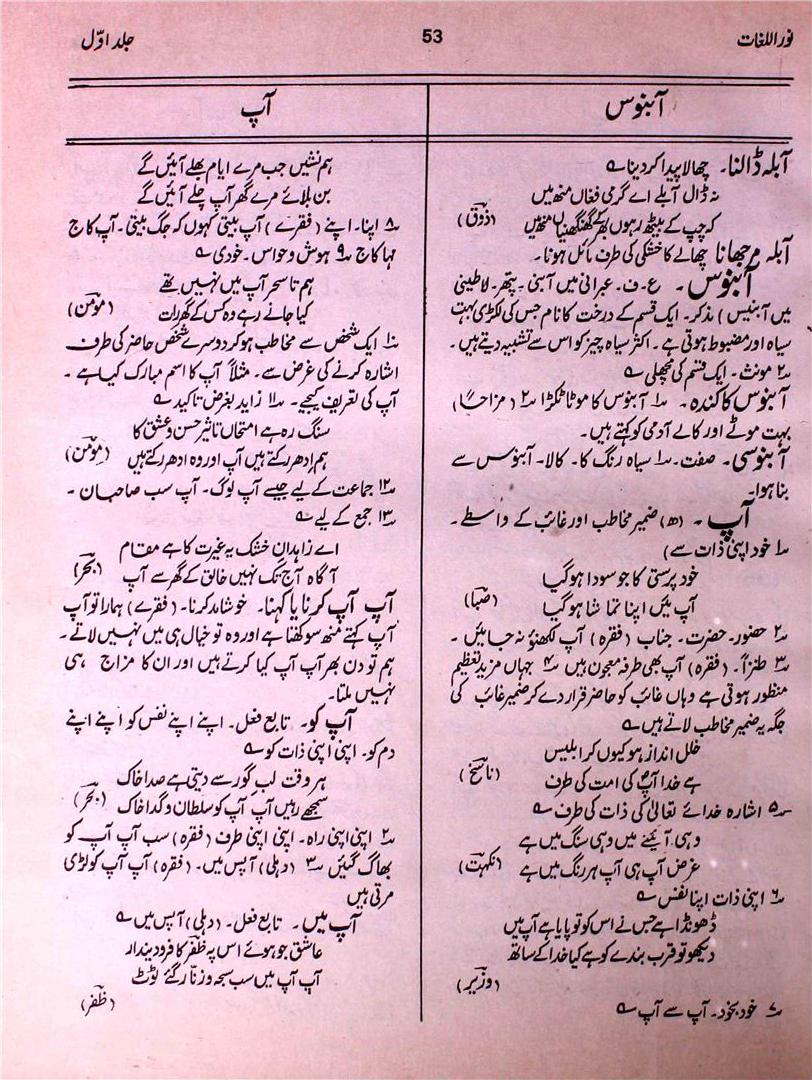 نور اللغات
53
جلد اوّل
آبنوس
آبلہ ڈالنا۔ چھالا پیدا کر دینا ؎
نہ ڈال آبلے اے گرمی فغاں منھ میں
کہ چپ کے بیٹھ رہوں بھر کے گھنگھنیاں منھ میں (ذوقؔ)
آبلہ مرجھانا چھالے کا خشکی کی طرف مائل ہونا۔
آبنوس۔ ع۔ ف۔ عبرانی میں آبنی۔ پتھر۔ لاطینی
میں آبنیس) مذکر۔ ایک قسم کے درخت کا نام جس کی لکڑی بہت
سیاہ اور مضبوط ہوتی ہے۔ اکثر سیاہ چیز کو اس سے تشبیہ دیتے ہیں۔
۲؎ مونث۔ ایک قسم کی مچھلی ؎
آبنوس کا کندہ۔ ۱؎ آبنوس کا موٹا ٹکڑا ۲؎ (مزاحاً)
بہت موٹے اور کالے آدمی کو کہتے ہیں۔
آبنوسی۔ صفت۔ ۱؎ سیاہ رنگ کا۔ کالا۔ آبنوس سے
بنا ہوا۔
آپ۔ (ھ) ضمیر مخاطب اور غائب کے واسطے۔
۱؎ خود اپنی ذات سے)
خود پرستی کا جو سودا ہو گیا
آپ میں اپنا تماشا ہو گیا (صباؔ)
۲؎ حضور۔ حضرت۔ جناب (فقرہ) آپ لکھنؤ نہ جائیں۔
۳؎ طنزاً۔ (فقرہ) آپ بھی طرفہ معجون ہیں ۴؎ جہاں مزید تعظیم
منظور ہوتی ہے وہاں غائب کو حاضر قرار دے کر ضمیر غائب کی
جگہ یہ ضمیر مخاطب لاتے ہیں ؎
خلل انداز ہو کیوں کر ابلیس
ہے خدا آپؐ کی امت کی طرف (ناسخؔ)
۵؎ اشارہ خدائے تعالیٰ کی ذات کی طرف ؎
وہی آئینے میں وہی سنگ میں ہے
غرض آپ ہی آپ ہر رنگ میں ہے (نکہتؔ)
۶؎ اپنی ذات اپنا نفس ؎
ڈھونڈا ہے جس نے اس کو تو پایا ہے آپ میں
دیکھو تو قرب بندے کو ہے کیا خدا کے ساتھ
(وزیرؔ)
۷؎ خود بخود۔ آپ سے آپ ؎
آپ
ہم نشیں جب مرے ایام بھلے آئیں گے
بن بلائے مرے گھر آپ چلے آئیں گے
۸؎ اپنا۔ اپنے (فقرے) آپ بیتی کہوں کہ جگ بیتی۔ آپ کاج
مہا کاج ۹؎ ہوش و حواس۔ خودی ؎
ہم تا سحر آپ میں نہیں تھے
کیا جانے رہے وہ کس کے گھر رات (مومنؔ)
۱۰؎ ایک شخص سے مخاطب ہو کر دوسرے شخص حاضر کی طرف
اشارہ کرنے کی غرض سے۔ مثلاً آپ کا اسم مبارک کیا ہے۔
آپ کی تعریف کیجیے۔ ۱۱؎ زاید بغرض تاکید ؎
سنگ رہ ہے امتحاں تاثیر حسن و عشق کا
ہم ادھر رکتے ہیں آپ اور وہ ادھر رکتے ہیں (مومنؔ)
۱۲؎ جماعت کے لیے جیسے آپ لوگ۔ آپ سب صاحبان۔
۱۳؎ جمع کے لیے ؎
اے زاہدان خشک یہ غیرت کا ہے مقام
آگاہ آج تک نہیں خالق کے گھر سے آپ (بحرؔ)
آپ آپ کرنا یا کہنا۔ خوشامد کرنا۔ (فقرے) ہمارا تو آپ
آپ کہتے منھ سوکھتا ہے اور وہ تو خیال ہی میں نہیں لاتے۔
ہم تو دن بھر آپ آپ کیا کرتے ہیں اور ان کا مزاج ہی
نہیں ملتا۔
آپ کو۔ تابع فعل۔ اپنے اپنے نفس کو اپنے اپنے
دم کو۔ اپنی اپنی ذات کو ؎
ہر وقت لب گور سے دیتی ہے صدا خاک
سمجھے رہیں آپ آپ کو سلطان و گدا خاک (بحرؔ)
۲؎ اپنی اپنی راہ۔ اپنی اپنی طرف (فقرہ) سب آپ آپ کو
بھاگ گئیں ۳؎ (دہلی) آپس میں۔ (فقرہ) آپ آپ کو لڑی
مرتی ہیں
آپ میں۔ تابع فعل۔ (دہلی) آپس میں ؎
عاشق جو ہوئے اس پہ ظفرؔ کافر و دیندار
آپ آپ میں سب سبحہ و زنار گئے لوٹ
(ظفرؔ)